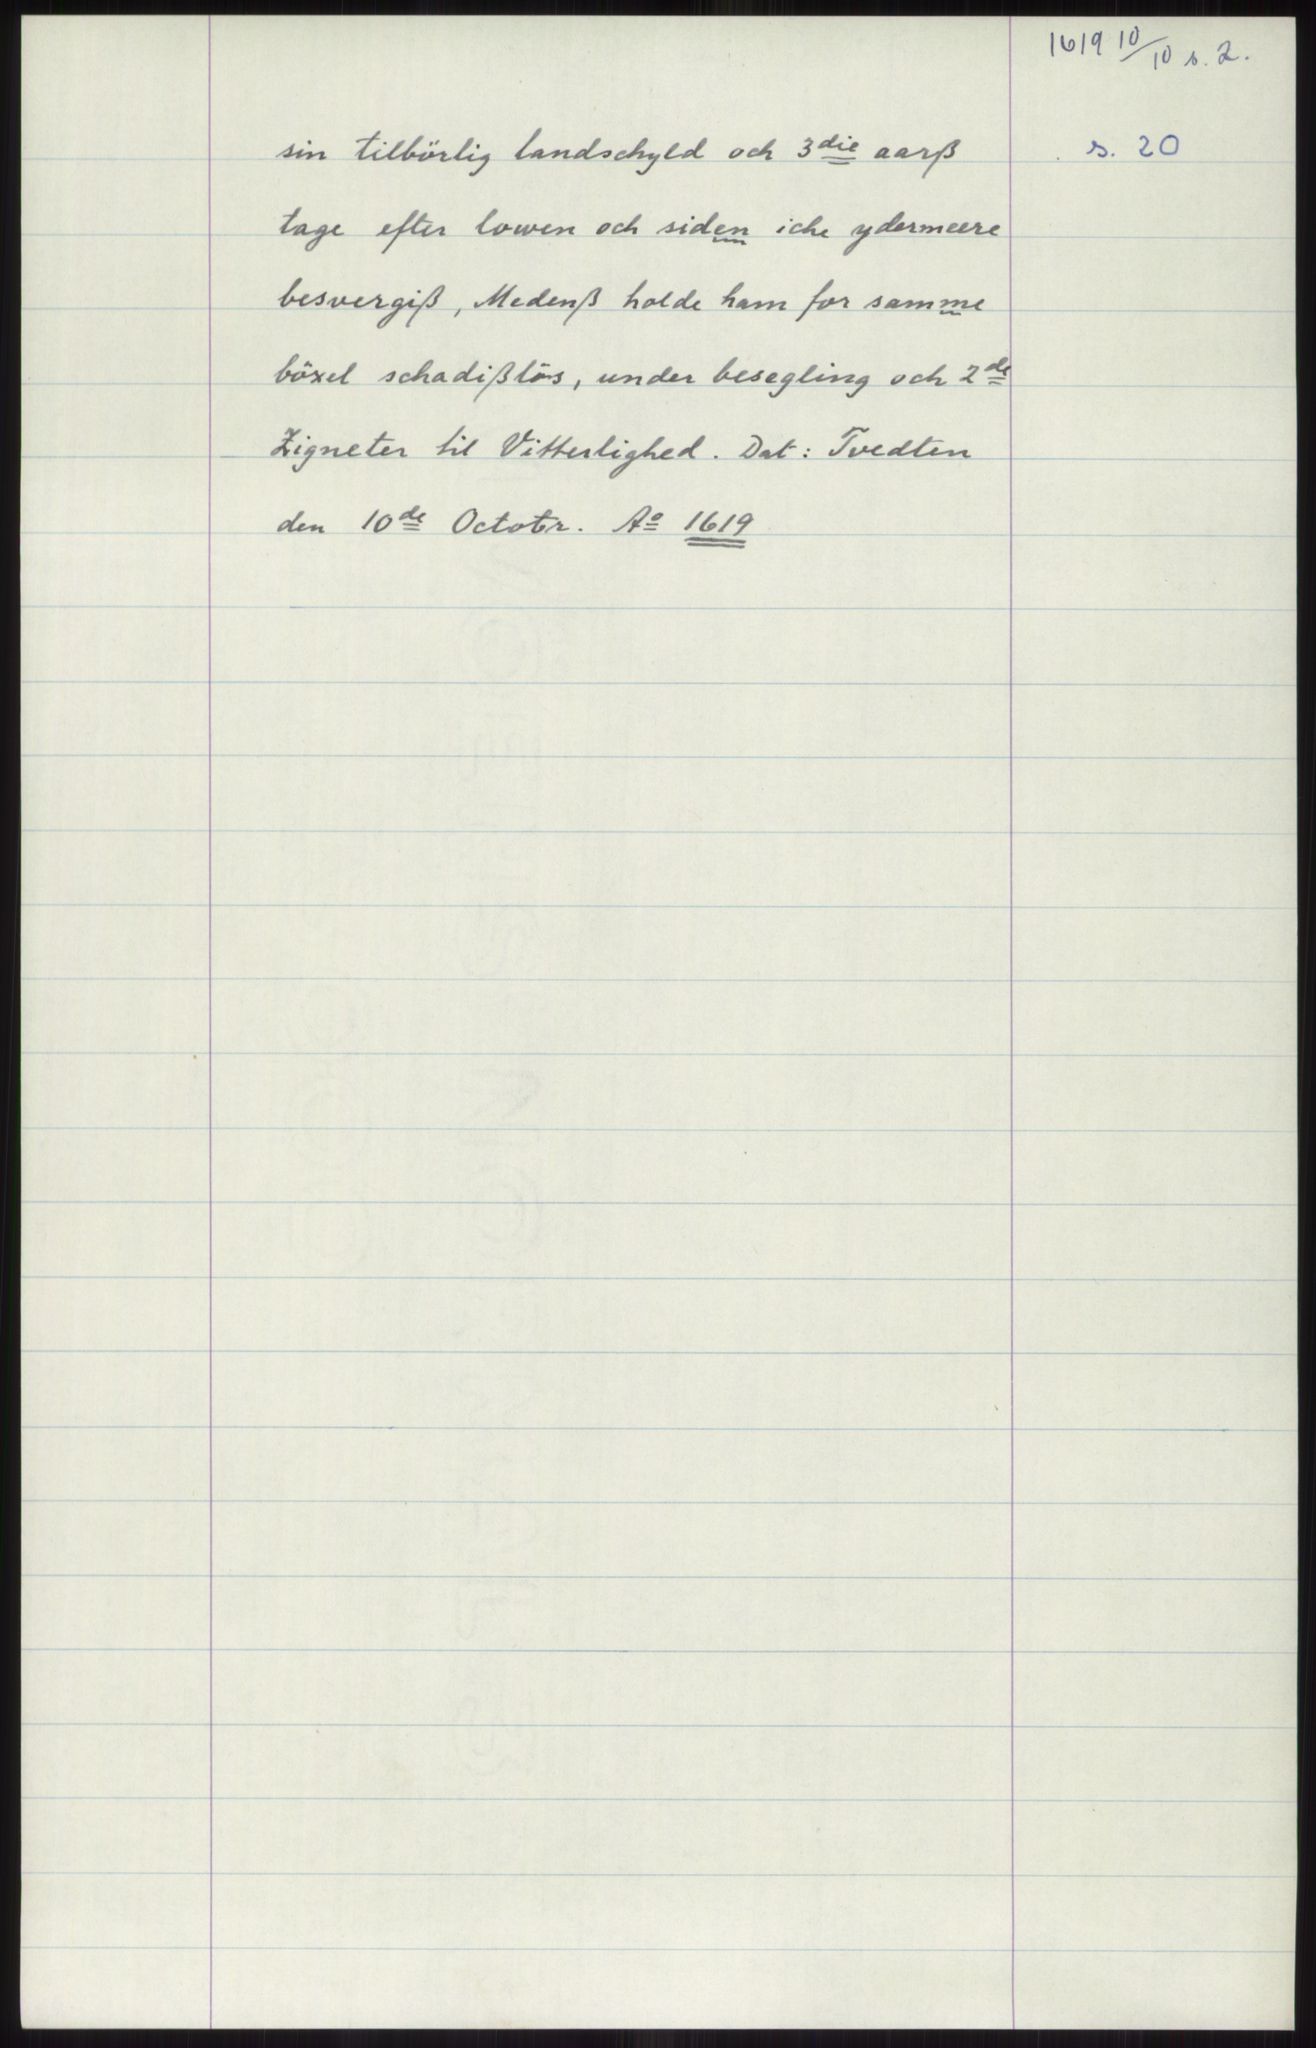 1619 10/10 s. 2.
s. 20
sin tilbörlig landschyld och 3die aarß
tage efter lowen och siden iche ydermeere
besvergiß, Medenß holde ham for samme
böxel schadißlös, under besegling och 2de
Zigneter til Vitterlighed. Dat: Tvedten
den 10de Octobr. Ao 1619